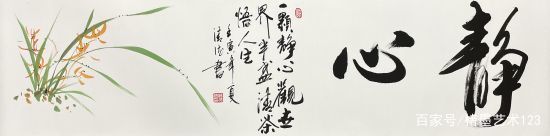 静心
一顆静心觀世
界半盏清茶
悟人生
壬寅年夏
書
百家号/楮墨艺术123